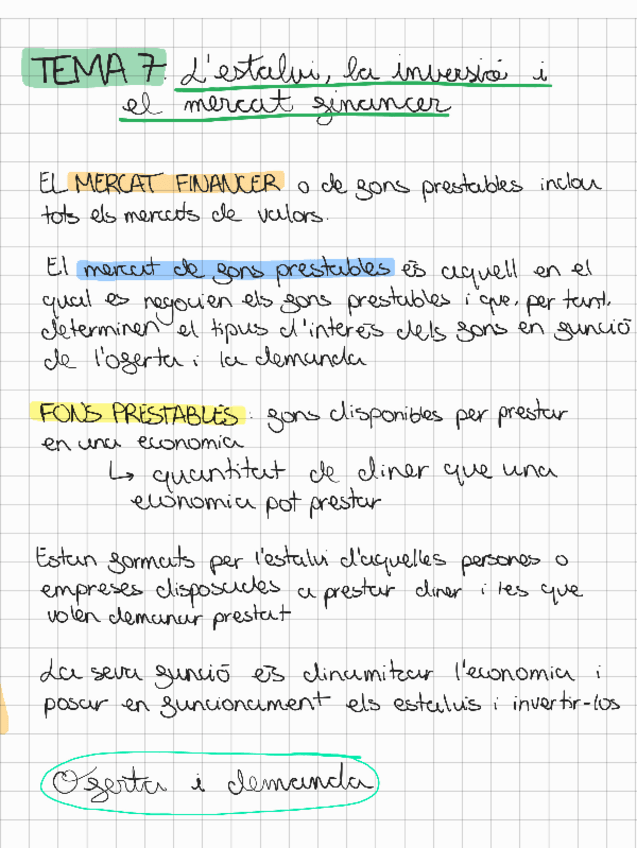 TEMA 7. L'estalvi, la inversió i
el mercat financer
EL MERCAT FINANCER o de fons prestables inclou
tots els mercats de valors.
El mercat de fons prestables és aquell en el
qual es negocien els fons prestables i que, per tant,
determinen el tipus d'interès dels fons en funció
de l'oferta i la demanda
FONS PRESTABLES: fons disponibles per prestar
en una economia
↳ quantitat de diner que una
economia pot prestar
Estan formats per l'estalvi d'aquelles persones o
empreses disposades a prestar diner i les que
volen demanar prestat
La seva funció és dinamitzar l'economia i
posar en funcionament els estalvis i invertir-los
Oferta i demanda